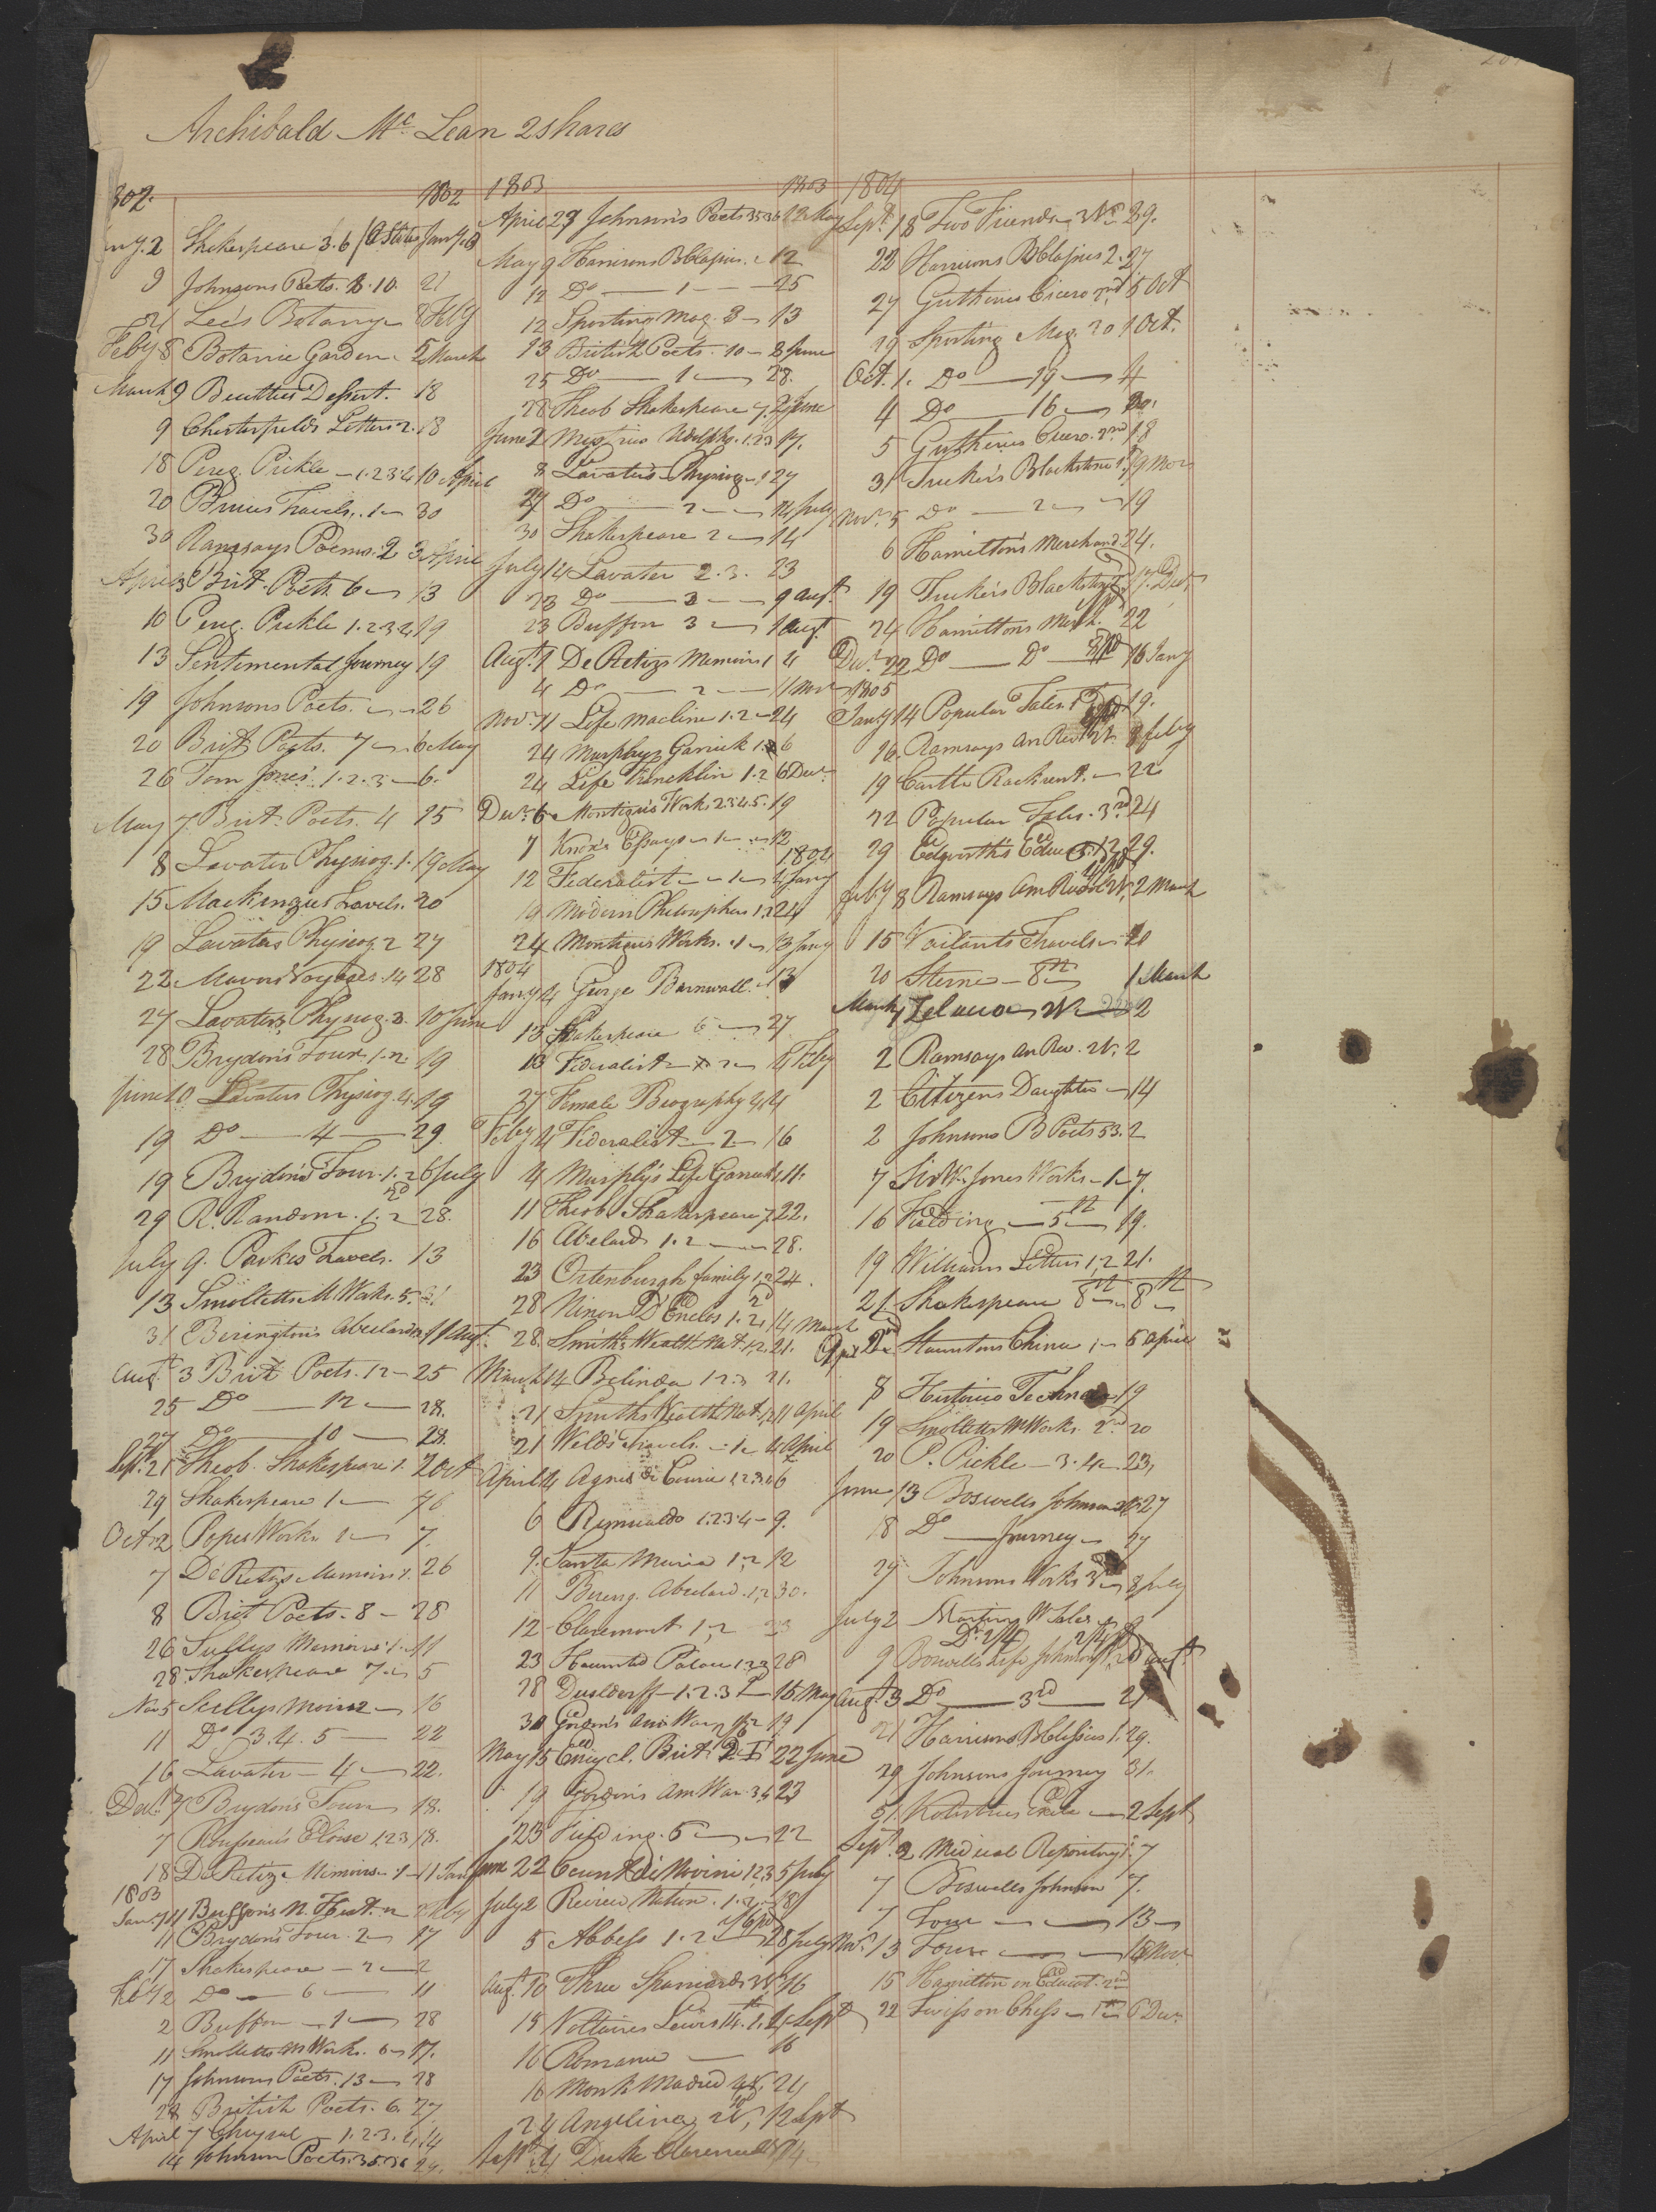 Archibald Mc Lean 2 shares
302. 1802
2 Shakespeare 3.6
9 Johnsons Poets. 8.10. 21
21 Lee's Botany 8 Feby
Feby 8 Botanic Garden 5 March
March 9 Beatties Dissert. 18
9 Chesterfield's Letters 2. 18
18 Pereg. Pickle 1.2.3.4 10 April
20 Bruces Travels. 1 30
30 Ramsays Poems. 2 3 April
April 3 Brit. Poets 6 13
10 Pereg. Pickle 1.2.3.4 19
13 Sentimental Journey 19
19 Johnsons Poets. 26
20 Brit. Poets. 7 6 May
26 Tom Jones 1.2.3 6.
May 7 Brit. Poets. 4 15
8 Lavater Physiog. 1. 19 May
15 Mackenzies Travels. 20
19 Lavaters Physiog. 2 27
22 Mavors Voyages. 14 28
27 Lavaters Physiog. 3. 10 June
28 Brydon's Tour 1.2. 19
June 10 Lavaters Physiog. 4. 19
19 Do 4 29
19 Brydon's Tour. 1.2 6 July
29 R. Random. 1.2 28.
July 9. Parkes Travels. 13
13 Smolletts M Works. 5.
31 Beringtons Abelard 11 Augt.
Augt 3 Brit Poets. 12 25
25 Do 12 28.
27 Do 10 28.
Sept. 21 Theob. Shakespeare 1. 2 Oct
29 Shakespeare 1
Oct. 2 Popes Works 1 7.
7 De Retz's Memoirs 1. 26
8 Brit Poets. 8 28
26 Sullys Memoirs 1. 11
28 Shakespeare 7 5
Nov 5 Sullys Memoirs 2 16
11 Do 3.4.5 22
16 Lavater 4 22.
Decr. 7 Brydon's Tour 18.
7 Rousseau's Eloise 1.2.3 18.
18 De Retz's Memoirs 1 11
1803
Jany 11 Buffons N. Hist.
11 Brydon's Tour 2 17
17 Shakespeare 2 2
Feby 2 Do 6 11
2 Buffon 1 28
11 Smolletts M Works. 6 17.
17 Johnsons Poets. 13 28
28 British Poets. 6. 27
April 7 Chrysal 1.2.3.4. 14
14 Johnson Poets. 35.36 24.
1803 1803
April 27 Johnson's Poets 35.36 12 May
May 9 Harrisons B Classics. 2 12
12 Do 1 25
12 Sporting Mag. 3 13
13 British Poets. 10 8 June
25 Do 1 28.
28 Theob Shakespeare 7. 2 June
June 2 Mysteries Udolpho. 1.2.3 17.
8 Lavater's Physiog. 1 27
27 Do 2 14 July
30 Shakespeare 2 14
July 14 Lavater 2.3. 23
23 Do 3 9 Augt.
23 Buffon 3 1 Augt
Augt. 1 De Retzs Memoirs 1 4
4 Do 2 11 Nov
Nov. 11 Life Macline 1.2 24
24 Murphys Garrick 1.2 6
24 Life Francklin 1.2 6 Decr.
Decr. 6 Montague's Works 2.3.4.5. 19
7 Knox's Essays 1 12
1804
12 Federalist 1 4 Jany
19 Modern Philosophers 1.2 24
24 Montagues Works. 1 13 Jany
1804
Jany 4 George Barnwall. 13
13 Shakespeare 6 27
13 Federalist 2 4 Feby
27 Female Biography 4. 4
Feby 4 Federalist 2 16
4 Murphy's Life Garrick 1. 11.
11 Theob. Shakespeare 7. 22.
16 Abelard 1.2 28.
23 Ortenburgh family 1.2 24.
28 Ninon D'Enclos 1.2. 14 March
28. Smiths Wealth Nat 1.2. 21.
March 14 Belinda 1.2.3 21.
21 Smiths Wealth Nat. 1.2 11 April
21 Welds Travels. 1 4 April
April 4 Agnes De Courci 1.2.3.4 6
6 Romualdo 1.2.3.4 9.
9. Santa Maria 1.2 12
11 Bering. Abelard. 1.2 30.
12 Claremont 1.2 23
23 Haunted Palace 1.2.3 28
28 Dusldorff 1.2.3 15 May
30 Gordon's Am War 1.2 19
May 15 Encycl. Brit. 22 June
19 Gordon's Am War 3.4 23
23 Fielding. 5 22
June 22 Count di Novini 1.2.3 5 July
July 2 Rosicu Nation. 1.2. 18
5 Abbess 1.2 28 July
Augt. 10 Three Spaniards 16
15 Voltaires Lewis 14. 1. Sept
16 Romance 16
16 Monk Madrid 24
24 Angelina 2 V. 12 Sept
Sept. 4 Duke Clarence 14
1804
Sept. 18 Two Friends 29.
22 Harrisons B Classics 2. 27
27 Guthries Cicero 2nd 5 Oct
29 Sporting Mag. 20 1 Oct.
Oct. 1. Do 19 4
4 Do 16 Do.
5 Guthries Cicero. 2nd 18
31 Tucker's Blackstone 1st 9 Nov
Nov. 5 Do 2 19
6 Hamilton's Merchand. 24.
19 Tucker's Blackstone 17. Decr
24 Hamiltons Merch. 22
Decr. 22 Do Do 16 Jany
1805
Jany 14 Popular Tales 19.
16. Ramsays Am Rev 8 Feby
19 Castle Rackrent. 22
22 Popular Tales. 3rd 24
29 Edgworth's Educat. 1.2 29.
Feby 8 Ramsays Am Rev 2 March
15 Vailants Travels 20
20 Sterne 8th 1 March
March 1 Zeluco 2 V 2
2 Ramsays Am Rev. 2 V. 2
2 Citizens Daughter 14
2 Johnsons B Poets 53. 2
7 Sir W. Jones Works 1 7.
16 Fielding 5th 19.
19 Williams Letters 1.2 21.
21 Shakspeare 8th 8th
April 2nd Stauntons China 1 5 April
8 Historico Technica 19
19 Smolletts M Works. 2nd 20
20 P. Pickle 3.4 23.
June 13 Boswells Johnson 27
18 Do Journey 27
27 Johnsons Works 3 8 July
July 2 Martin W Isles 9
Do 2/4
9 Boswells Life Johnson
Augt. 3 Do 3rd 21
21 Harrisons B Classics 1. 29.
29 Johnsons Journey 31.
31 Kotzebues Exile 2 Sept
Sept. 2 Medical Repository 7
7 Boswells Johnson 7.
7 Tour 13
Nov. 13 Tour 15 Nov
15 Hamilton on Educat. 2nd
22 Twiss on Chess 1st 6 Decr.